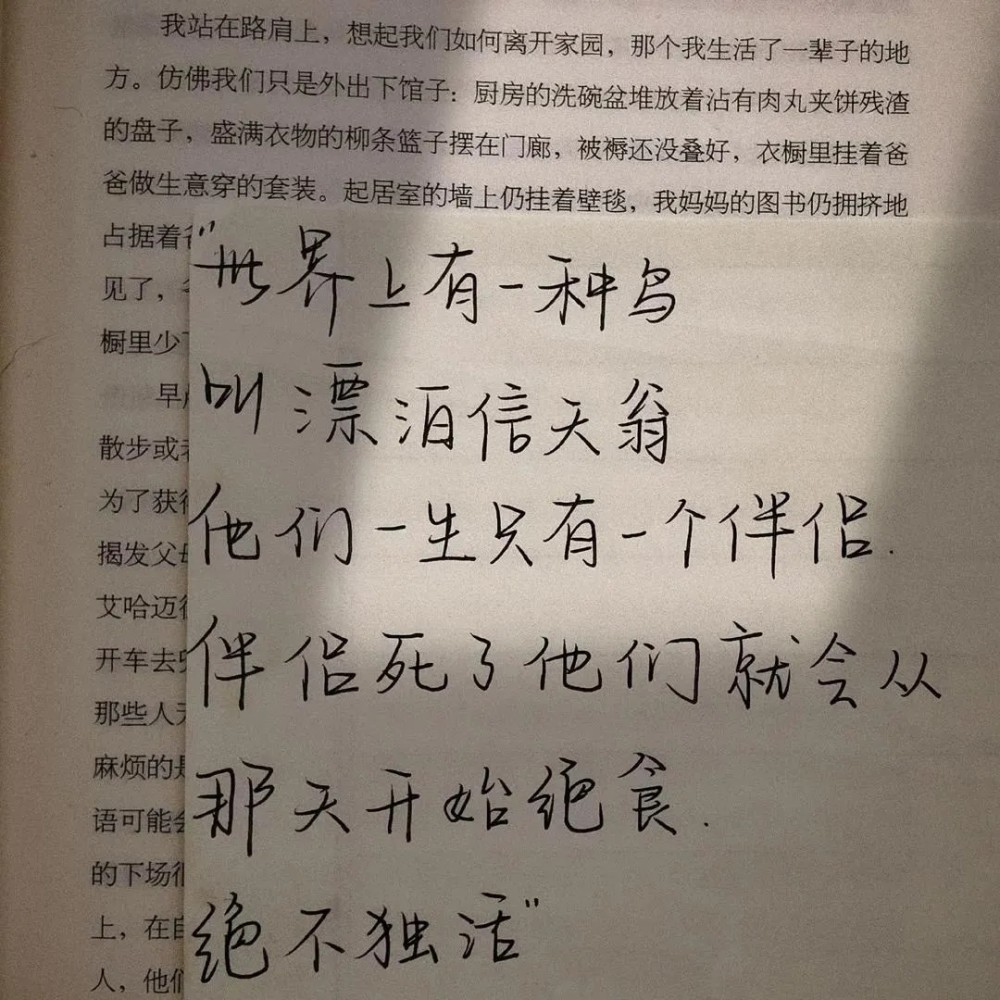 我站在路肩上，想起我们如何离开家园，那个我生活了一辈子的地
方。仿佛我们只是外出下馆子：厨房的洗碗盆堆放着沾有肉丸夹饼残渣
的盘子，盛满衣物的柳条篮子摆在门廊，被褥还没叠好，衣橱里挂着爸
爸做生意穿的套装。起居室的墙上仍挂着壁毯，我妈妈的图书仍拥挤地
占据着
见了，
橱里少
早
散步或
为了获得
揭发父母
艾哈迈得
开车去
那些人
麻烦的是
语可能会
的下场很
上，在自
人，他们
"世界上有一种鸟
叫漂泊信天翁
他们一生只有一个伴侣.
伴侣死了他们就会从
那天开始绝食.
绝不独活"